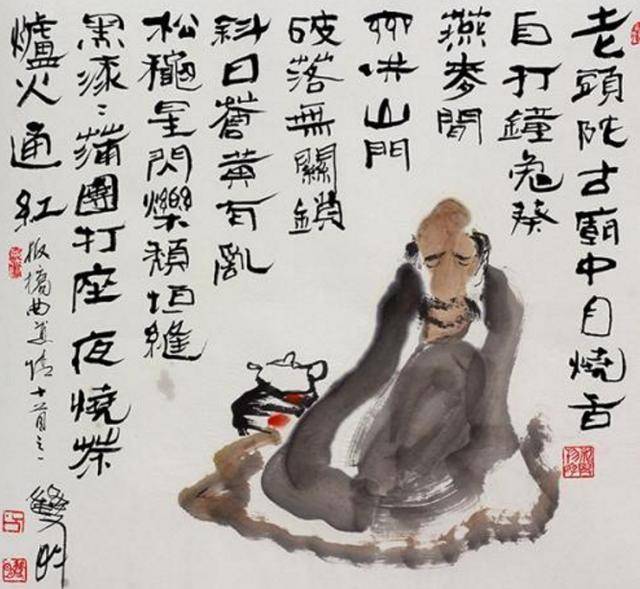 老頭陀古廟中自燒香
自打鐘兔葵
燕麥閒
齋供山門
破落無關鎖
斜日蒼黃有亂
松龝星閃爍頹垣縫
黑漆〻蒲團打座夜燒茶
爐火通紅
板橋曲道情十首之一
雙